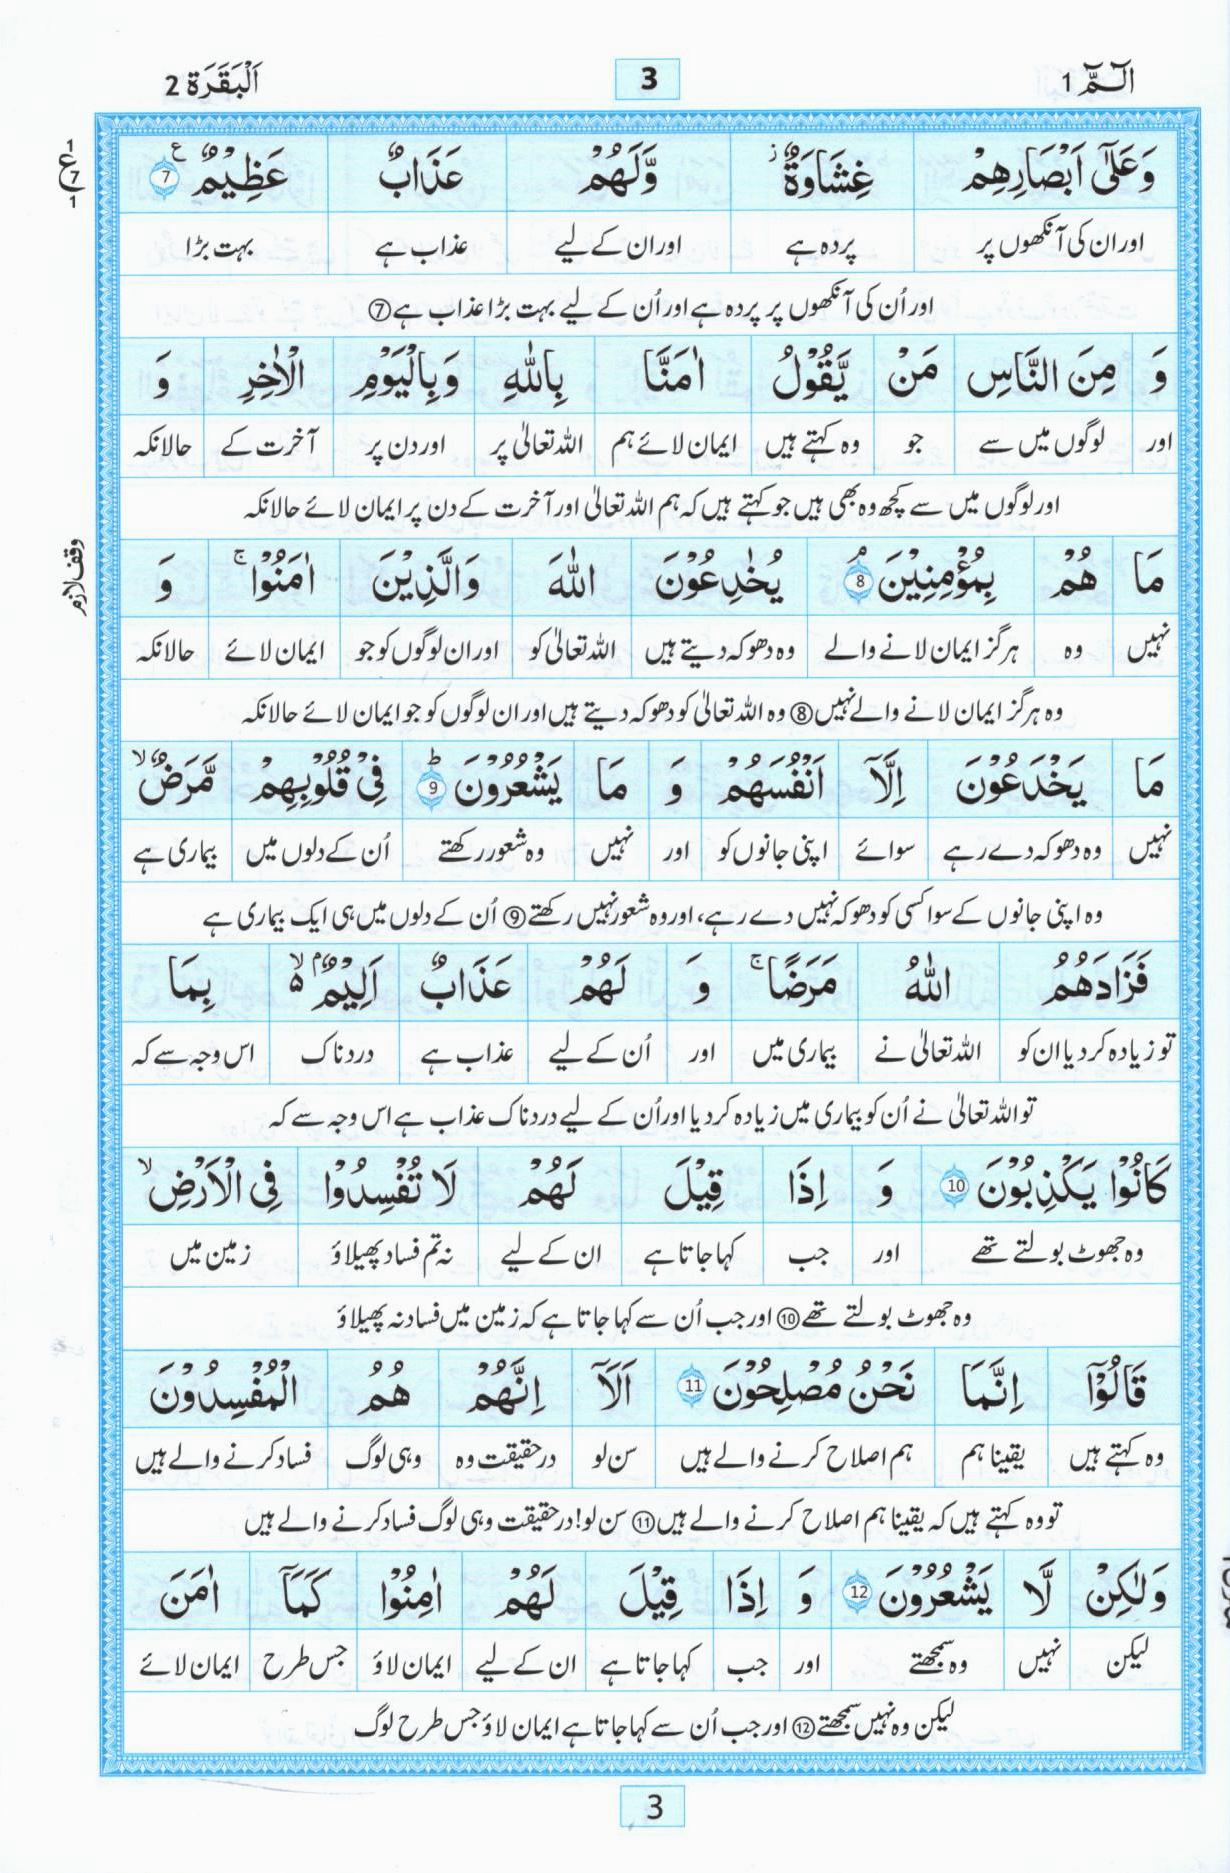 الٓمّٓ 1
3
اَلْبَقَرَة 2
وَعَلٰٓى اَبْصَارِهِمْ غِشَاوَةٌ ز وَّلَهُمْ عَذَابٌ عَظِيْمٌ ع 7
اور ان کی آنکھوں پر پردہ ہے اور ان کے لیے عذاب ہے بہت بڑا
اور اُن کی آنکھوں پر پردہ ہے اور اُن کے لیے بہت بڑا عذاب ہے ⑦
وَ مِنَ النَّاسِ مَنْ يَّقُوْلُ اٰمَنَّا بِاللّٰهِ وَبِالْيَوْمِ الْاٰخِرِ وَ
اور لوگوں میں سے جو وہ کہتے ہیں ایمان لائے ہم اللہ تعالیٰ پر اور دن پر آخرت کے حالانکہ
اور لوگوں میں سے کچھ وہ بھی ہیں جو کہتے ہیں کہ ہم اللہ تعالیٰ اور آخرت کے دن پر ایمان لائے حالانکہ
وقف لازم
مَا هُمْ بِمُؤْمِنِيْنَ ۘ 8 يُخٰدِعُوْنَ اللّٰهَ وَالَّذِيْنَ اٰمَنُوْا ۚ وَ
نہیں وہ ہرگز ایمان لانے والے وہ دھوکہ دیتے ہیں اللہ تعالیٰ کو اور ان لوگوں کو جو ایمان لائے حالانکہ
وہ ہرگز ایمان لانے والے نہیں ⑧ وہ اللہ تعالیٰ کو دھوکہ دیتے ہیں اور ان لوگوں کو جو ایمان لائے حالانکہ
مَا يَخْدَعُوْنَ اِلَّآ اَنْفُسَهُمْ وَ مَا يَشْعُرُوْنَ ؕ 9 فِيْ قُلُوْبِهِمْ مَّرَضٌ ۙ
نہیں وہ دھوکہ دے رہے سوائے اپنی جانوں کو اور نہیں وہ شعور رکھتے اُن کے دلوں میں بیماری ہے
وہ اپنی جانوں کے سوا کسی کو دھوکہ نہیں دے رہے، اور وہ شعور نہیں رکھتے ⑨ اُن کے دلوں میں ہی ایک بیماری ہے
فَزَادَهُمُ اللّٰهُ مَرَضًا ۚ وَ لَهُمْ عَذَابٌ اَلِيْمٌ ۢ ۙ بِمَا
تو زیادہ کر دیا ان کو اللہ تعالیٰ نے بیماری میں اور اُن کے لیے عذاب ہے دردناک اس وجہ سے کہ
تو اللہ تعالیٰ نے اُن کو بیماری میں زیادہ کر دیا اور اُن کے لیے دردناک عذاب ہے اس وجہ سے کہ
كَانُوْا يَكْذِبُوْنَ 10 وَ اِذَا قِيْلَ لَهُمْ لَا تُفْسِدُوْا فِي الْاَرْضِ ۙ
وہ جھوٹ بولتے تھے اور جب کہا جاتا ہے ان کے لیے نہ تم فساد پھیلاؤ زمین میں
وہ جھوٹ بولتے تھے ⑩ اور جب اُن سے کہا جاتا ہے کہ زمین میں فساد نہ پھیلاؤ
قَالُوْٓا اِنَّمَا نَحْنُ مُصْلِحُوْنَ 11 اَلَآ اِنَّهُمْ هُمُ الْمُفْسِدُوْنَ
وہ کہتے ہیں یقینا ہم ہم اصلاح کرنے والے ہیں سن لو درحقیقت وہ وہی لوگ فساد کرنے والے ہیں
تو وہ کہتے ہیں کہ یقینا ہم اصلاح کرنے والے ہیں ⑪ سن لو! درحقیقت وہی لوگ فساد کرنے والے ہیں
وَلٰكِنْ لَّا يَشْعُرُوْنَ 12 وَ اِذَا قِيْلَ لَهُمْ اٰمِنُوْا كَمَآ اٰمَنَ
لیکن نہیں وہ سمجھتے اور جب کہا جاتا ہے ان کے لیے ایمان لاؤ جس طرح ایمان لائے
لیکن وہ نہیں سمجھتے ⑫ اور جب اُن سے کہا جاتا ہے ایمان لاؤ جس طرح لوگ
3